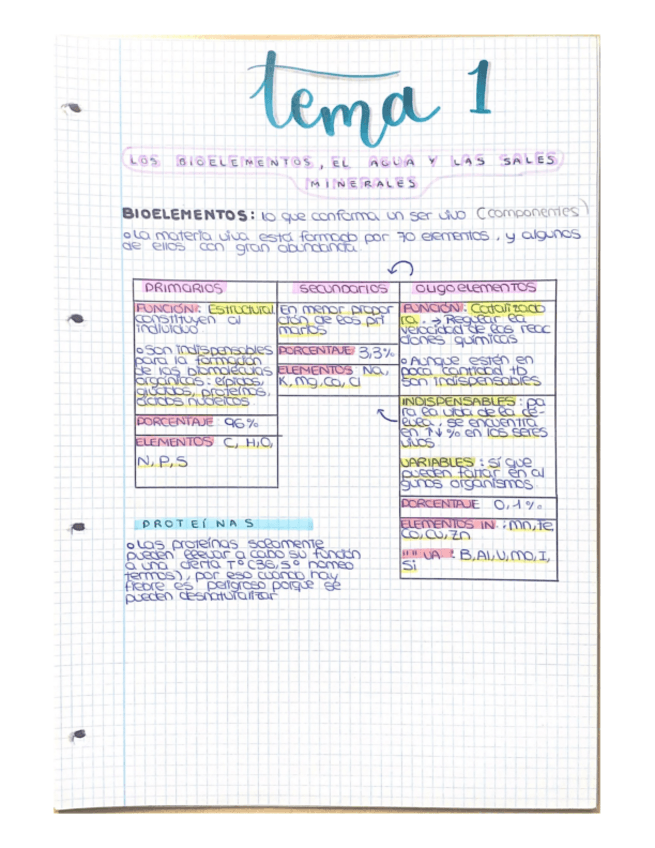 tema 1
LOS BIOELEMENTOS, EL AGUA Y LAS SALES
MINERALES
BIOELEMENTOS: lo que conforma un ser vivo (componentes)
La materia viva está formada por 70 elementos, y algunos
de ellos con gran abundancia.
PRIMARIOS
FUNCIÓN: Estructural
constituyen al
individuo
Son indispensables
para la formación
de las biomoléculas
orgánicas: lípidos,
glúcidos, proteínas,
ácidos nucleicos
PORCENTAJE: 96%
ELEMENTOS C, H, O,
N, P, S
secundarios
En menor propor
ción de los pri
marios
PORCENTAJE 3,3%
ELEMENTOS Na,
K, Mg, Ca, Cl
oligoelementos
FUNCIÓN: Catalizado
ra. → Regular la
velocidad de las reac
ciones químicas
Aunque estén en
poca cantidad tb
son indispensables
INDISPENSABLES: pa
ra la vida de la
se encuentra
en ↑↓% en los seres
vivos
VARIABLES: sí que
pueden faltar en al
gunos organismos.
PORCENTAJE 0,1%
ELEMENTOS IN.: Mn, Fe
Co, Cu, Zn
"" VA: B, Al, V, Mo, I,
Si
PROTEÍNAS
Las proteínas solamente
pueden llevar a cabo su función
a una cierta Tº (36,5º homeo
termos), por eso cuando hay
fiebre es peligroso porque se
pueden desnaturalizar